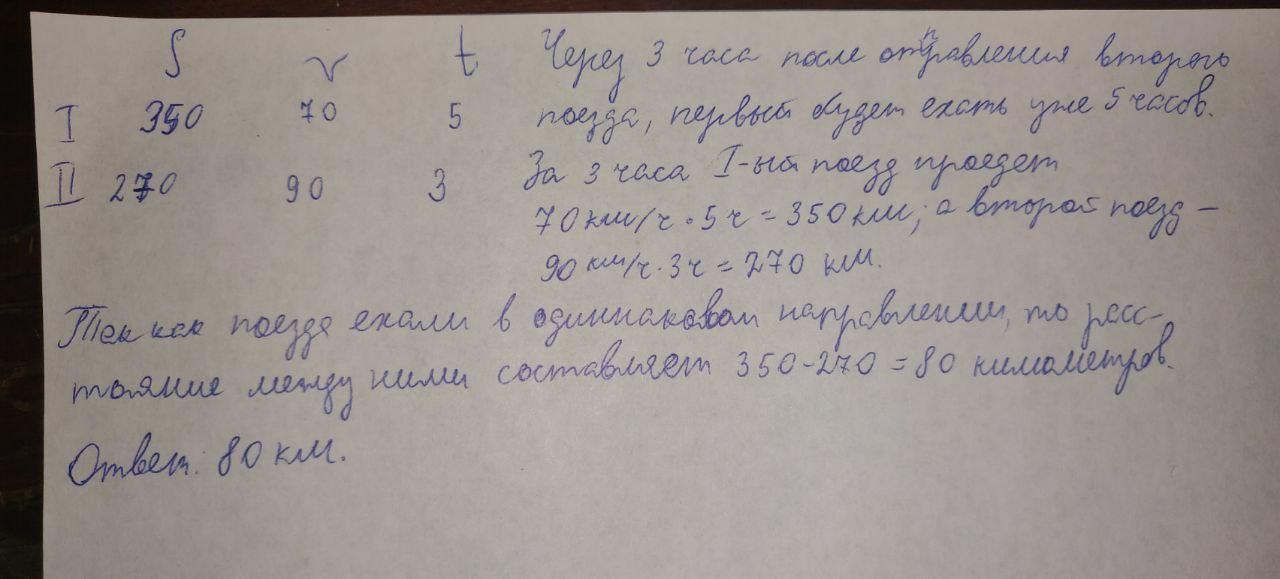 S v t
I 350 70 5
II 270 90 3
Через 3 часа после отправления второго
поезда, первый будет ехать уже 5 часов.
За 3 часа I-ый поезд проедет
70км/ч · 5ч = 350км; а второй поезд –
90 км/ч · 3ч = 270 км.
Так как поезда ехали в одиннаковом направлении, то расс-
тояние между ними составляет 350-270 = 80 километров.
Ответ: 80 км.